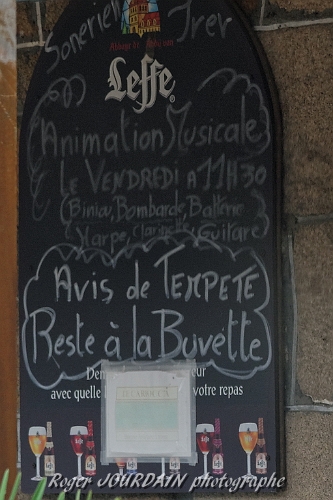 Sonerien Trev
Abbaye de Abdij van
Leffe
Animation Musicale
Le VENDREDI A 11H30
(Biniou, Bombarde, Batterie
Harpe, Clarinette, Guitare
Avis de TEMPETE
Reste à la Buvette
avec quelle votre repas
Roger JOURDAIN photographe